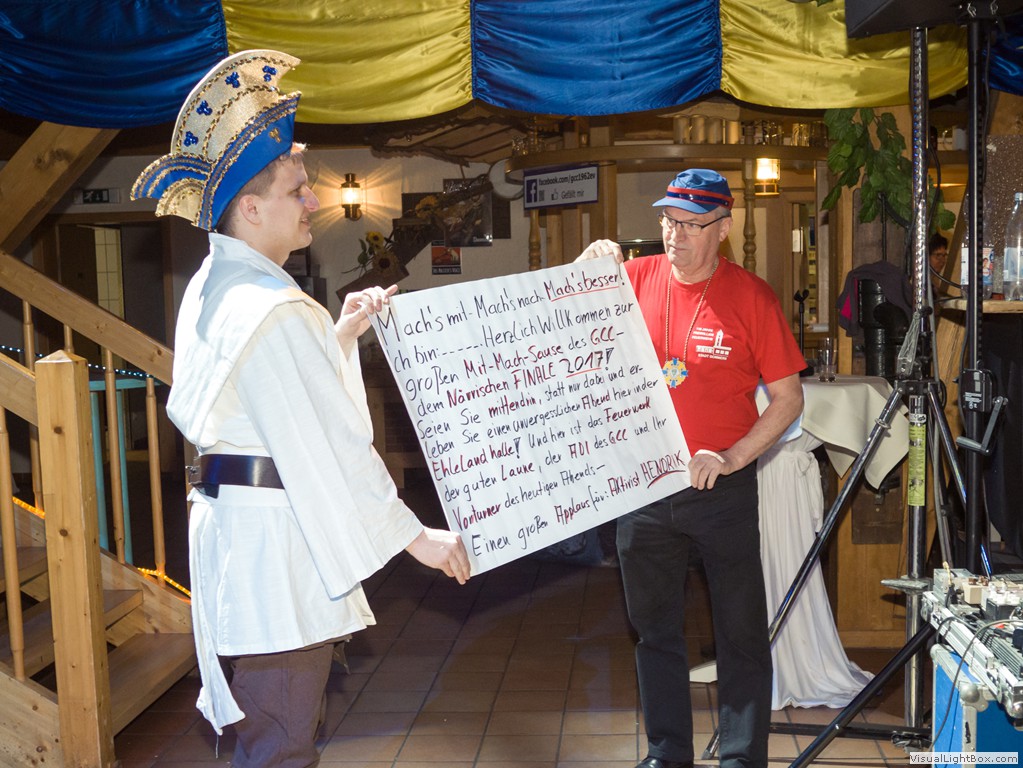 facebook.com/gcc1962ev
Gefällt mir
Mach's mit-Mach's nach-Mach'sbesser!
Ich bin:------Herzlich Willkommen zur
großen Mit-Mach-Sause des GCC-
dem Närrischen FINALE 2017!
Seien Sie mittendrin, statt nur dabei und er-
leben Sie einen unvergesslichen Abend hier in der
Ehlelandhalle! Und hier ist das Feuerwerk
der guten Laune, der ADI des GCC und Ihr
Vorturner des heutigen Abends-
Einen großen Applaus für: Aktivist HENDRIK
VisualLightBox.com